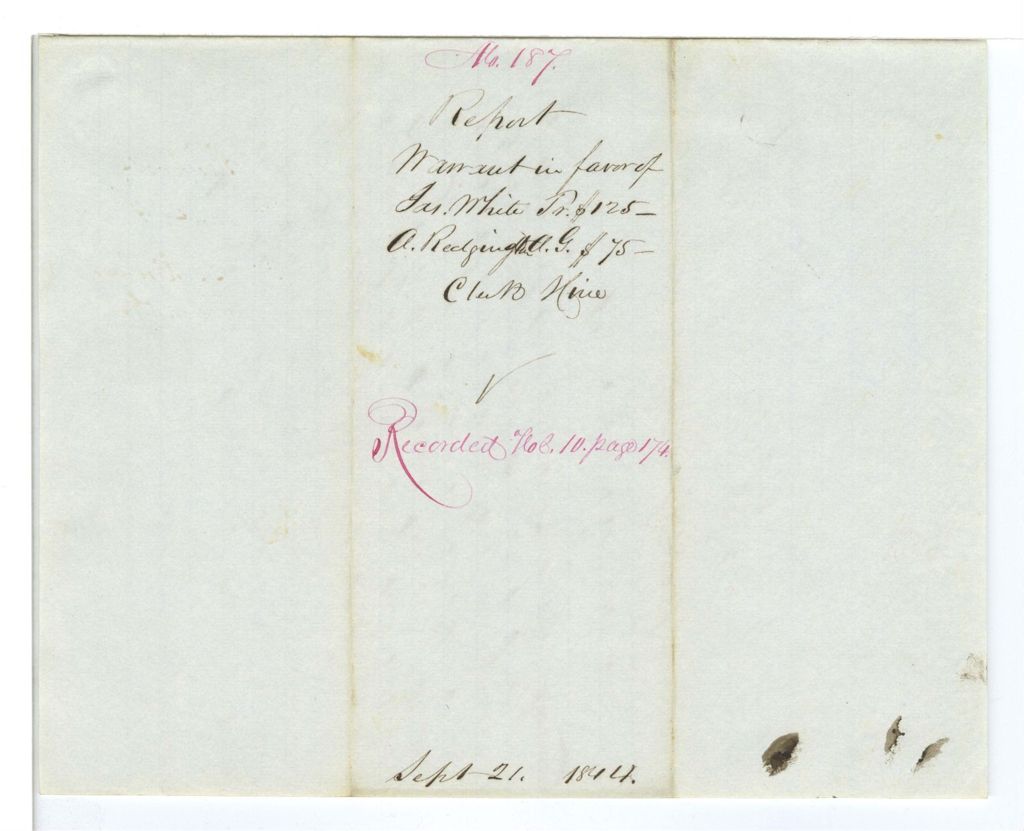 No. 187.
Report
Warrant in favor of
Jas. White Tr. $125—
A. Redington A.G. $75—
Clerk Hire
Recorded Vol. 10. page 174.
Sept 21. 1844.